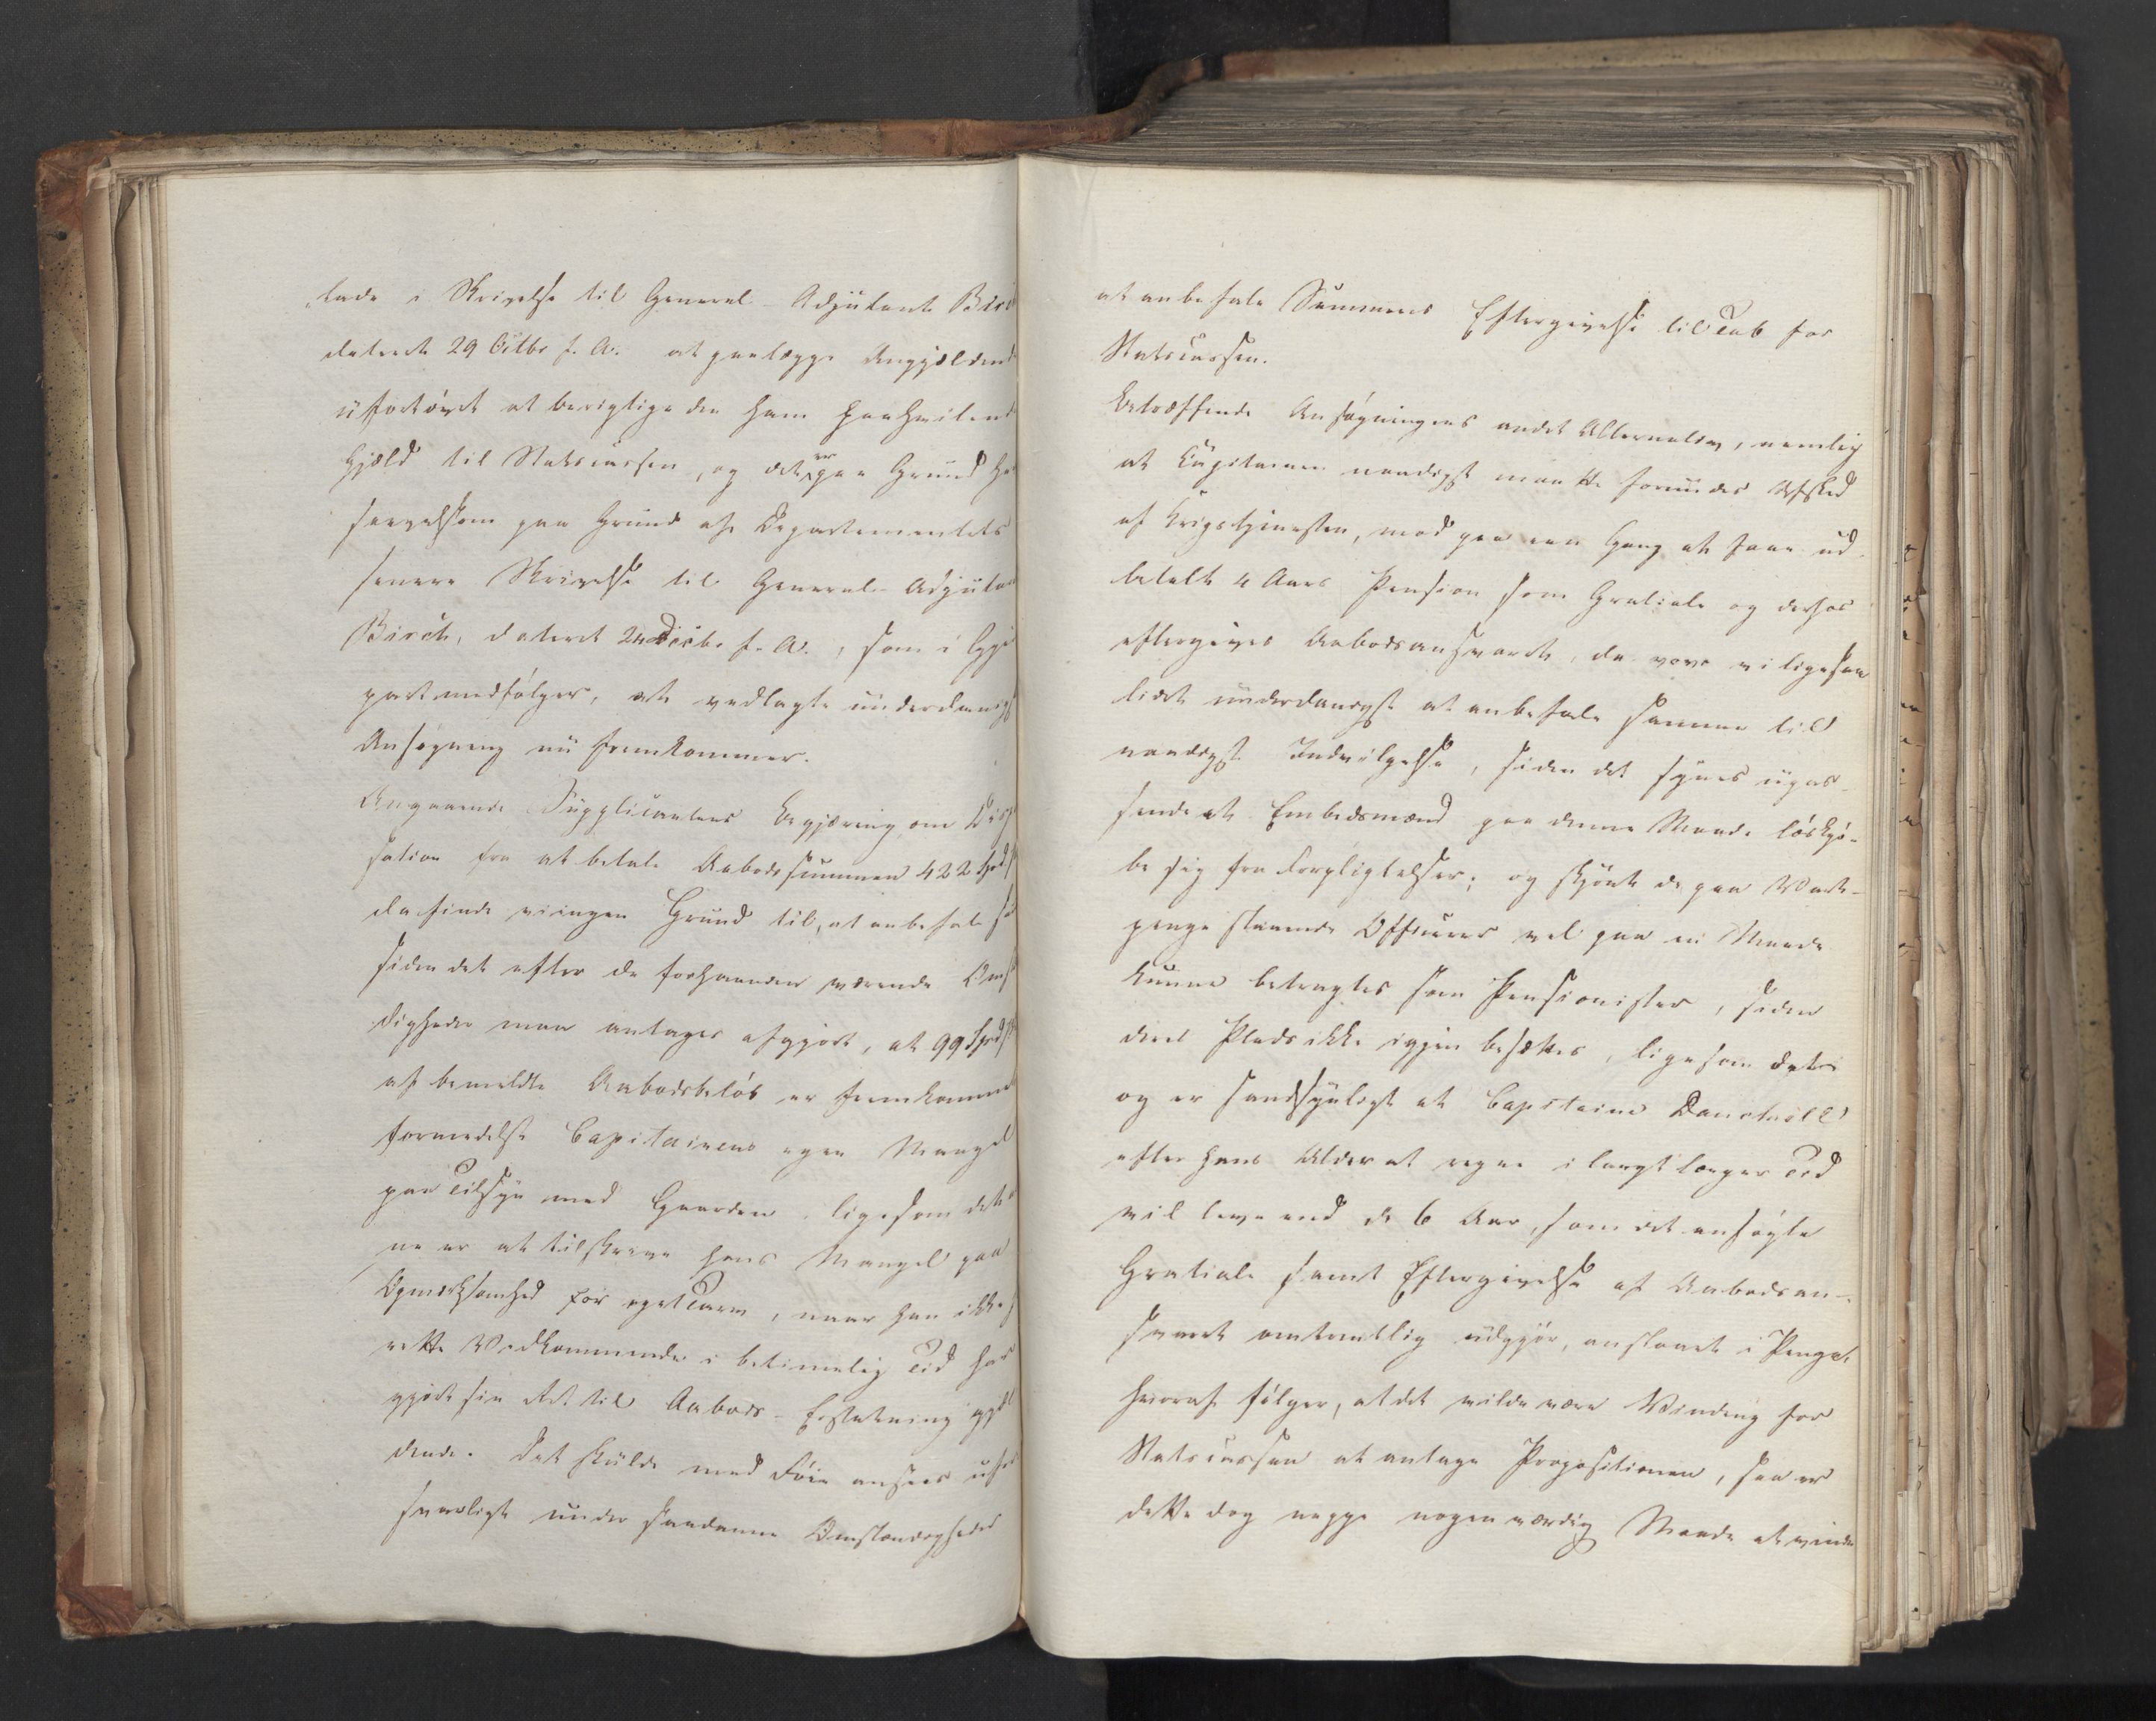 lade i Skrivelse til General-Adjutant Birc
dateret 29 Octbr f. A. at paalægge Angjældend
ufortøvet at berigtige den ham paahvilend
Gjæld til Statscassen, og det er paa Grund he
saavelsom paa Grund af Departementets
senere Skrivelse til General-Adjutan
Birch, dateret 24 Decbr f. A., som i Gjen
part medfølger, at vedlagte underdanigst
Ansøgning nu fremkommer.
Angaaende Supplicantens Begjæring om Disp
sation fra at betale Aabodssummen 422 Spd
da finde vi ingen Grund til, at anbefale
siden det efter de forhaanden værende Omst
digheder maa antages afgjort, at 99 Spd
af bemeldte Aabodsbeløb er fremkommen
formedelst Capitainens egen Mangel
paa Tilsyn med Gaarden, ligesom det
ne er at tilskrive hans Mangel paa
Opmærksomhed for eget Tarv, naar han ikke
rette Vedkommende i betimelig Tid har
gjort sin Ret til Aabods-Erstatning gjæl
dende. Det skulde med Føie ansees ufor
svarligt under saadanne Omstændigheder
at anbefale Summens Eftergivelse til Tab for
Statscassen.
Betræffende Ansøgningens andet Alternativ, nemlig
at Capitainen naadigst maatte forundes Afsked
af Krigstjenesten, mod paa een Gang at faae ud-
betalt 4 Aars Pension som Gratiale og derhos
eftergives Aabodsansvaret, da vove vi ligesaa
lidet underdanigst at anbefale samme til
naadigst Indvilgelse, siden det synes upas-
sende at Embedsmænd paa denne Maade løskjø-
be sig fra Forpligtelser; og skjønt de paa Varte-
penge staaende Officerer vel paa en Maade
kunne betragtes som Pensionister, siden
deres Plads ikke igjen besættes, ligesom det
og er sandsynligt at Capitaine
efter hans Alder at regne i langt længer Tid
vil leve end de 6 Aar, som det ansøgte
Gratiale samt Eftergivelse af Aabodsan-
svaret omtrentlig udgjør, anslaaet i Penge,
hvoraf følger, at det vilde være Vinding for
Statscassen at antage Propositionen, saa er
dette dog neppe nogen værdig Maade at vinde